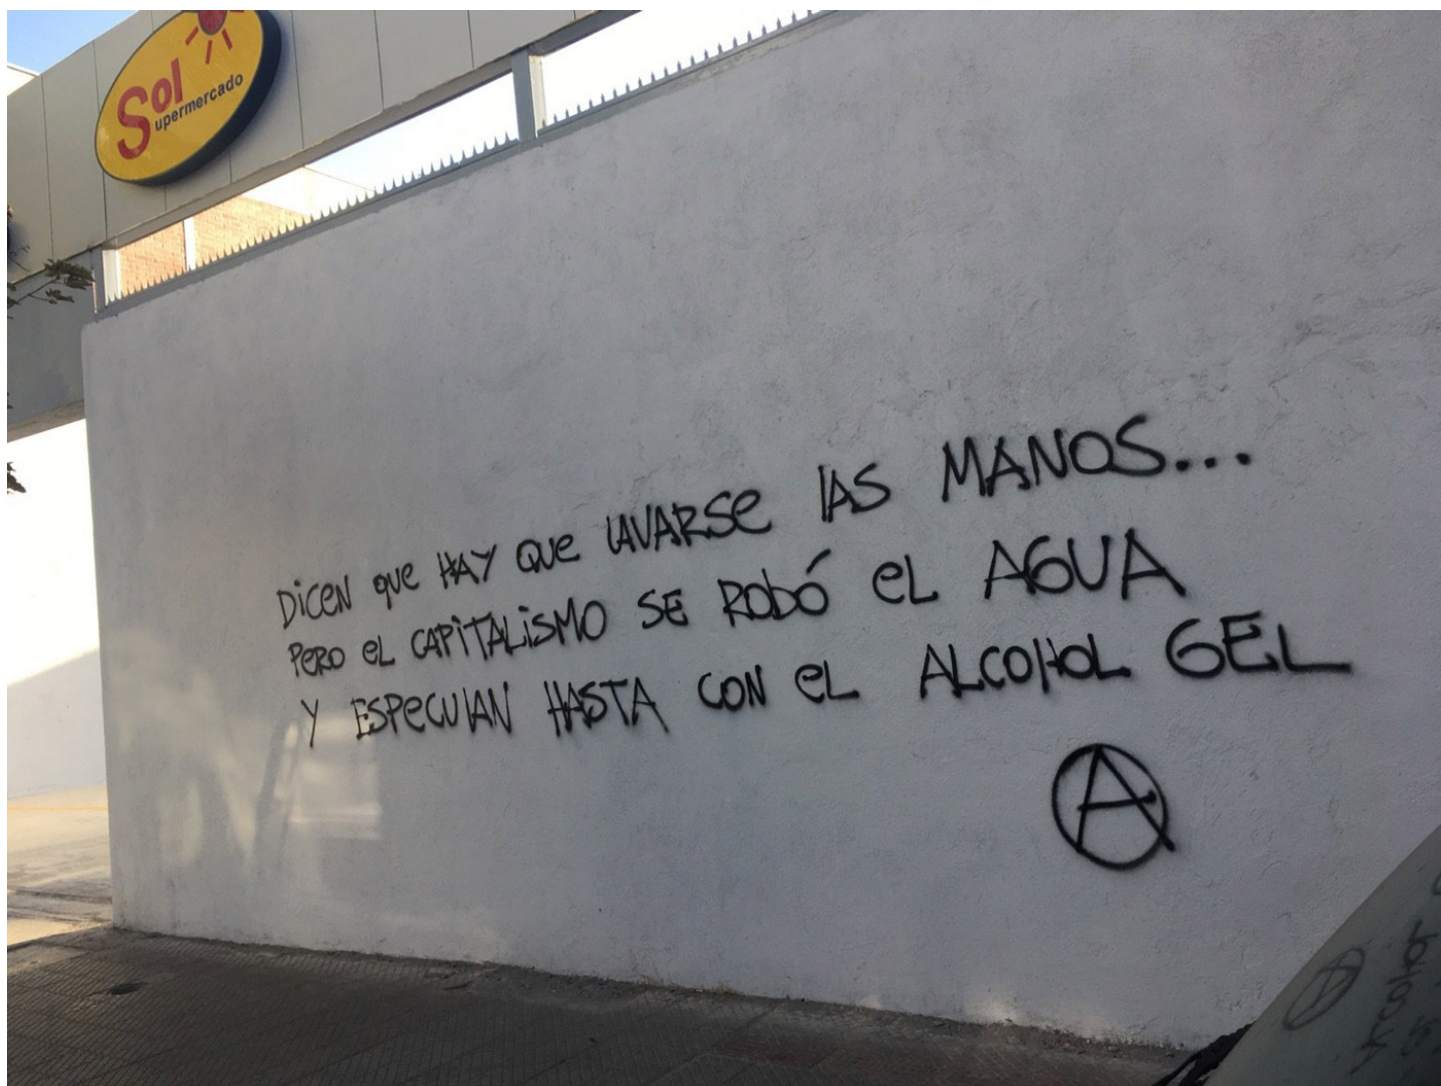 Sol
Supermercado
DiCEN que HAY QUe LAVARSe LAS MANOS...
PERO eL CAPiTALiSMO SE ROBÓ eL AGUA
Y ESPeCULAN HASTA CON eL ALCOHOL GEL
A